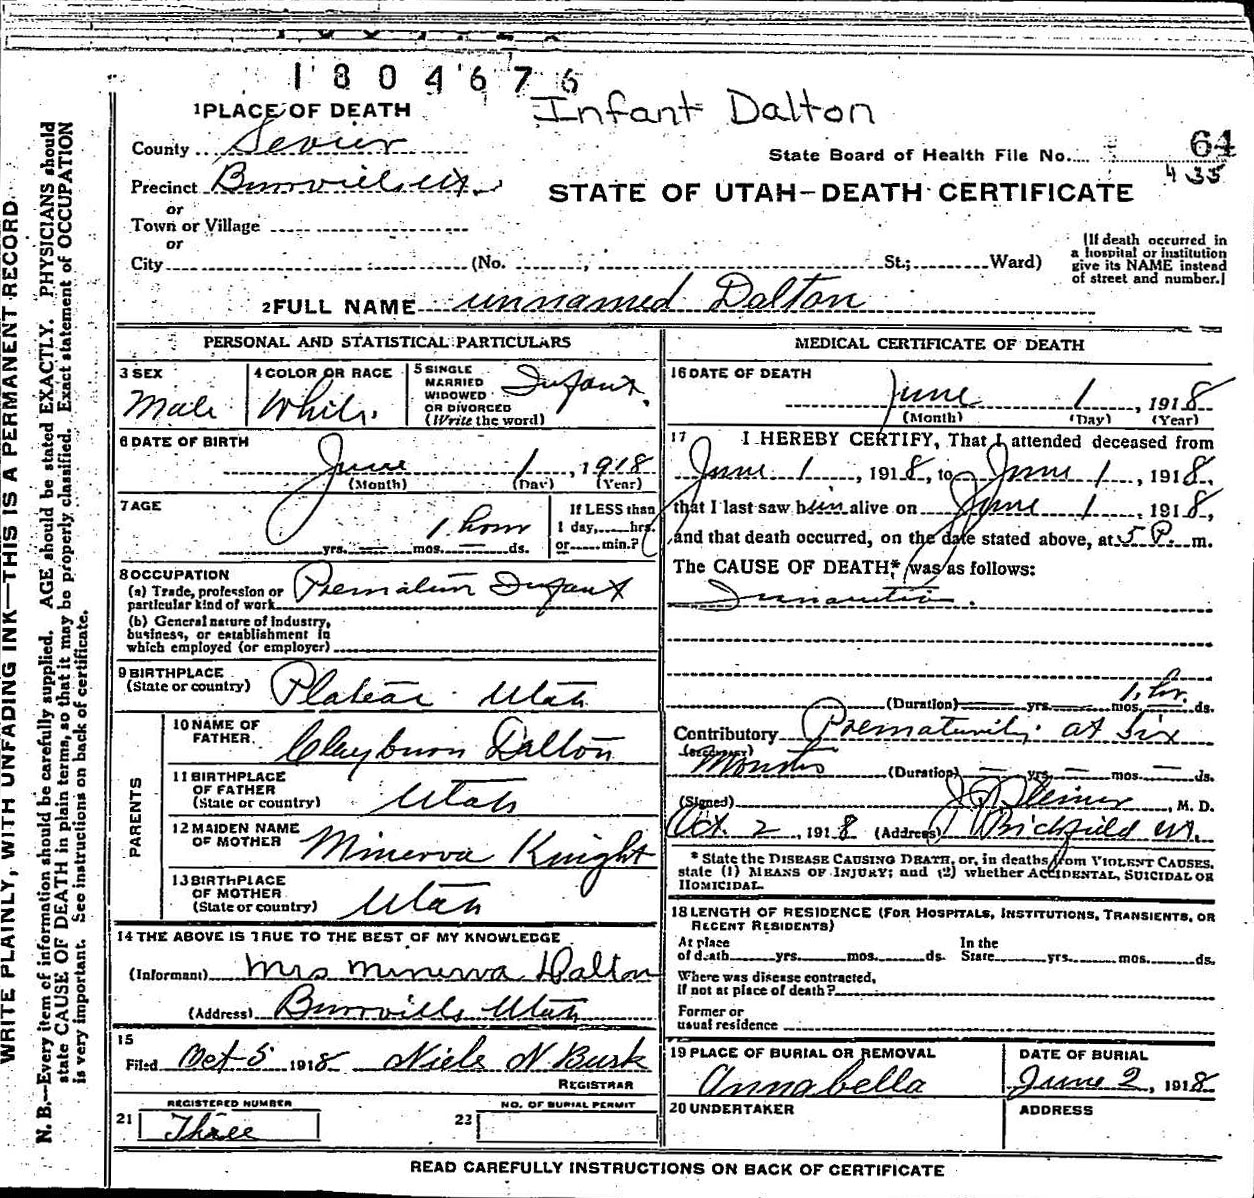 1804676
Infant Dalton
1 PLACE OF DEATH
County Sevier
State Board of Health File No. 64
435
Precinct Burrville Ut.
STATE OF UTAH—DEATH CERTIFICATE
or
Town or Village
or
City (No. , St.; Ward)
[If death occurred in
a hospital or institution
give its NAME instead
of street and number.]
2 FULL NAME unnamed Dalton
WRITE PLAINLY, WITH UNFADING INK—THIS IS A PERMANENT RECORD.
N. B.—Every item of information should be carefully supplied. AGE should be stated EXACTLY. PHYSICIANS should
state CAUSE OF DEATH in plain terms, so that it may be properly classified. Exact statement of OCCUPATION
is very important. See instructions on back of certificate.
PERSONAL AND STATISTICAL PARTICULARS
3 SEX
Male
4 COLOR OR RACE
White.
5 SINGLE
MARRIED
WIDOWED
OR DIVORCED
(Write the word)
Infant.
6 DATE OF BIRTH
June 1, 1918
(Month) (Day) (Year)
7 AGE
1 hour
yrs. — mos. — ds.
If LESS than
1 day, hrs.
or min.?
8 OCCUPATION
(a) Trade, profession or
particular kind of work
Premature Infant
(b) General nature of Industry,
business, or establishment in
which employed (or employer)
9 BIRTHPLACE
(State or country)
Plateau Utah
PARENTS
10 NAME OF
FATHER
Clayburn Dalton
11 BIRTHPLACE
OF FATHER
(State or country)
Utah
12 MAIDEN NAME
OF MOTHER
Minerva Knight
13 BIRTHPLACE
OF MOTHER
(State or country)
Utah
14 THE ABOVE IS TRUE TO THE BEST OF MY KNOWLEDGE
(Informant) Mrs Minerva Dalton
(Address) Burrville Utah
15
Filed Oct 5 1918 Niels N Burk
REGISTRAR
REGISTERED NUMBER
21 Three
NO. OF BURIAL PERMIT
22
MEDICAL CERTIFICATE OF DEATH
16 DATE OF DEATH
June 1, 1918
(Month) (Day) (Year)
17 I HEREBY CERTIFY, That I attended deceased from
June 1, 1918, to June 1, 1918,
that I last saw him alive on June 1, 1918,
and that death occurred, on the date stated above, at 5 P. m.
The CAUSE OF DEATH,* was as follows:
Inanition.
1 hr.
(Duration) yrs. mos. ds.
Contributory Prematurity at Six
(Secondary)
Months (Duration) — yrs. — mos. — ds.
(Signed) M. D.
Oct. 2, 1918 (Address) Richfield Ut.
* State the DISEASE CAUSING DEATH, or, in deaths from VIOLENT CAUSES,
state (1) MEANS OF INJURY; and (2) whether ACCIDENTAL, SUICIDAL OR
HOMICIDAL.
18 LENGTH OF RESIDENCE (FOR HOSPITALS, INSTITUTIONS, TRANSIENTS, OR
RECENT RESIDENTS)
At place
of death yrs. mos. ds.
In the
State yrs. mos. ds.
Where was disease contracted,
if not at place of death?
Former or
usual residence
19 PLACE OF BURIAL OR REMOVAL
Annabella
DATE OF BURIAL
June 2, 1918
20 UNDERTAKER
ADDRESS
READ CAREFULLY INSTRUCTIONS ON BACK OF CERTIFICATE